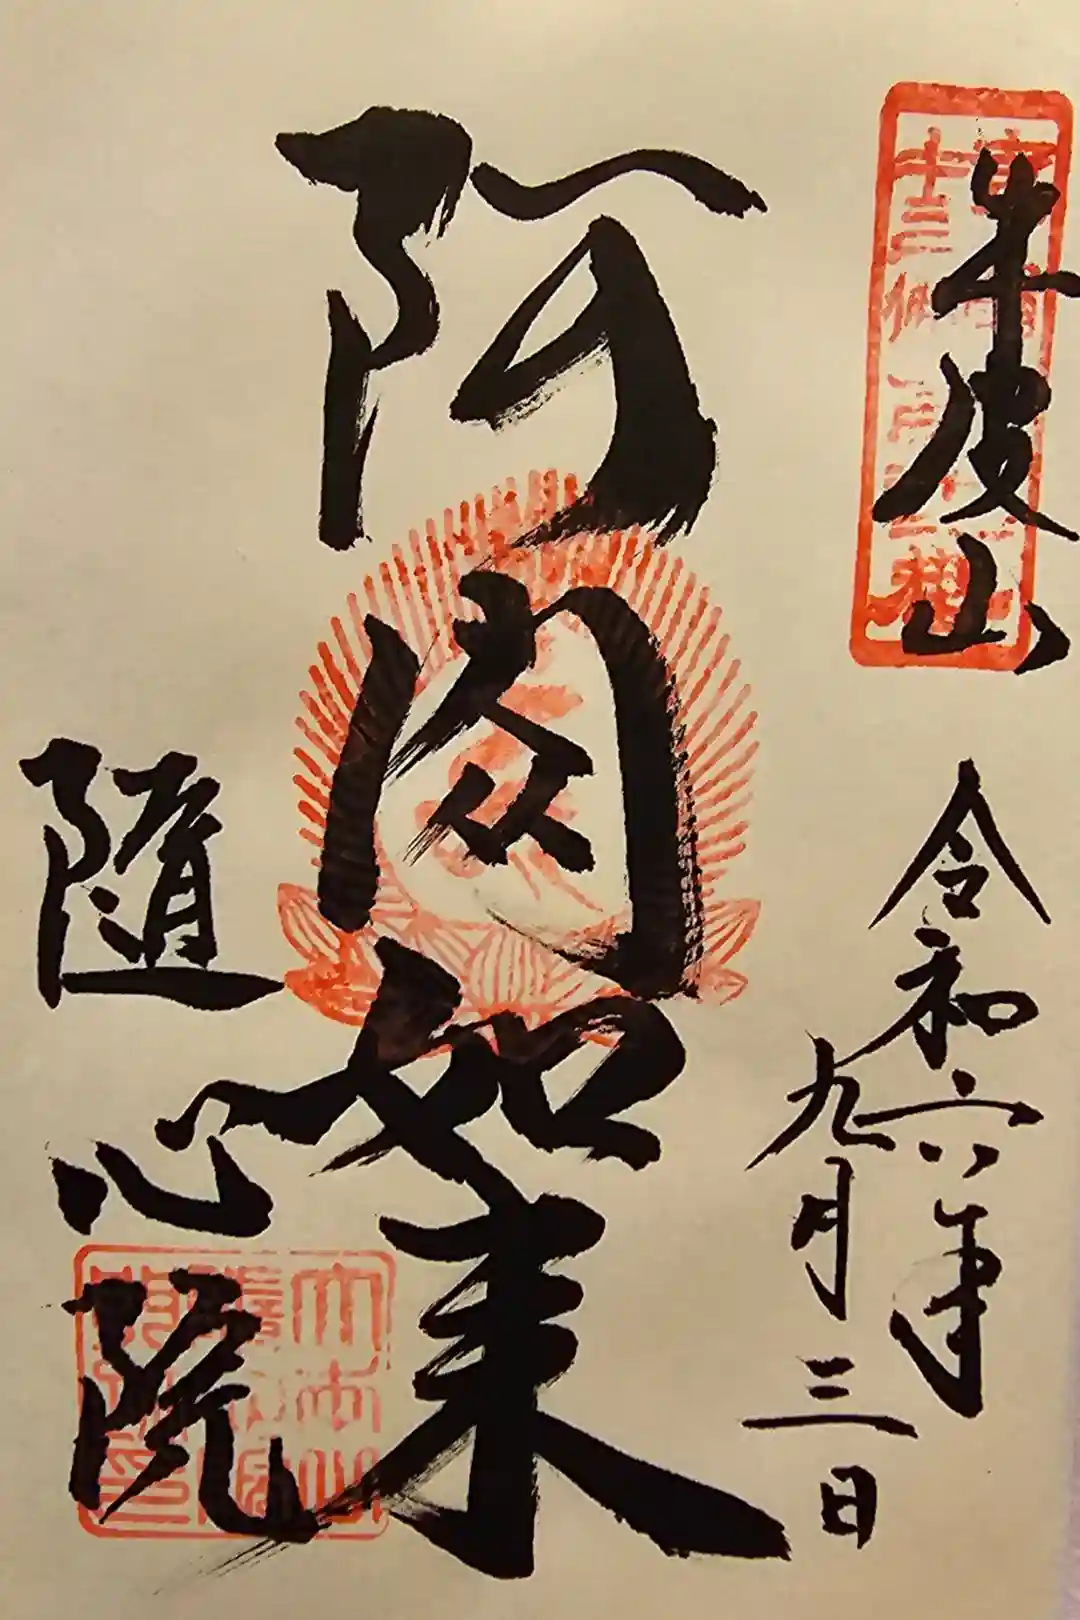 牛皮山
令和六年
九月三日
阿閦如来
隨心院